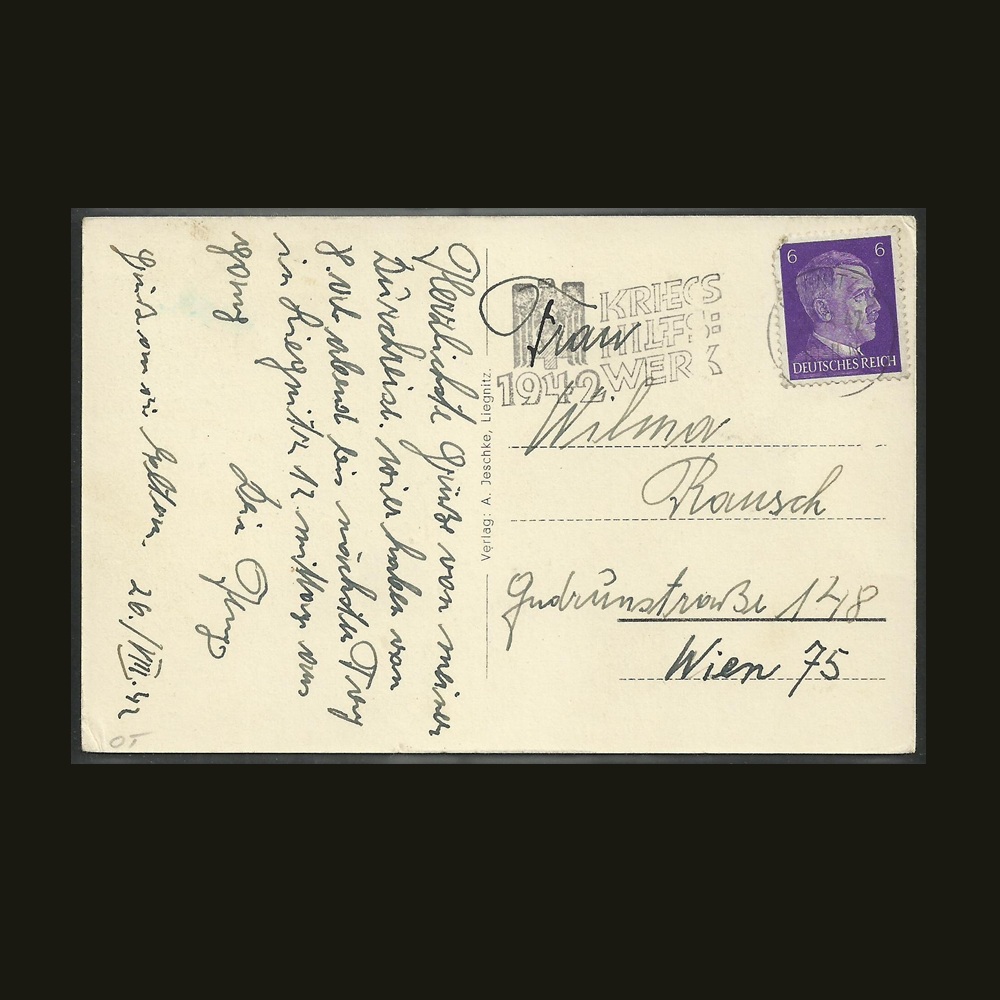 Herzlichste Grüße von meiner
Durchreise. wier haben von
8. Uhr abend bis nächsten Tag
in Liegnitz 12 mittags aus
gang
Dein
Grüs an die Eltern. 26./VIII.42
OT
Verlag: A. Jeschke, Liegnitz.
1942
KRIEGS
HILFS
WERK
6 6
DEUTSCHES REICH
Frau
Wilma
Rausch
Gudrunstraße 148
Wien 75